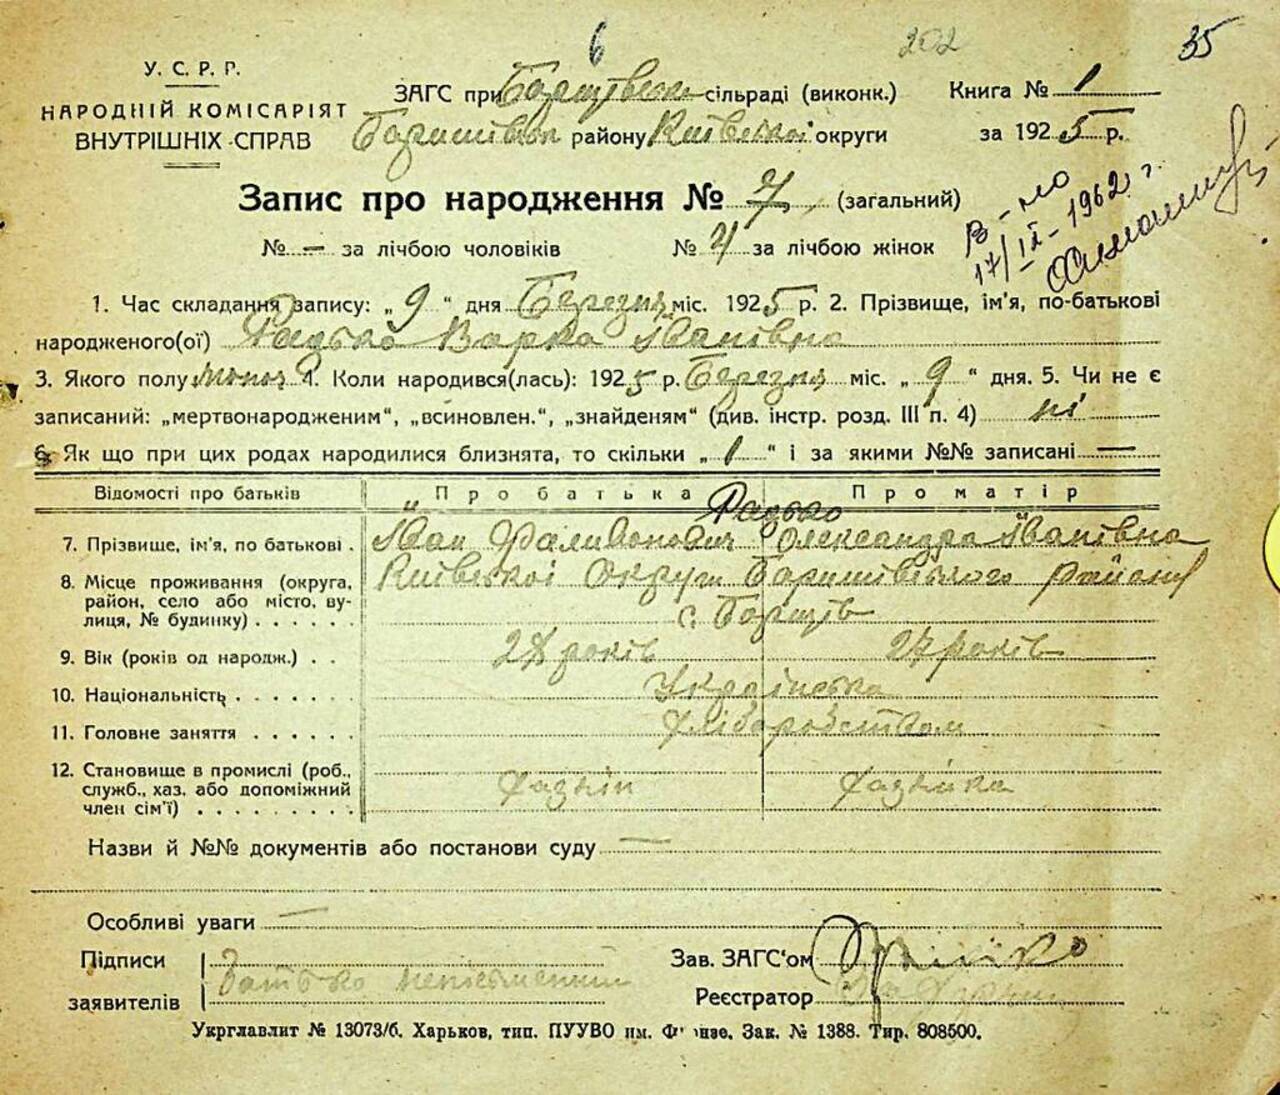 6 202 35
У. С. Р. Р.
НАРОДНІЙ КОМІСАРІЯТ
ВНУТРІШНІХ СПРАВ
ЗАГС при сільраді (виконк.) Книга № 1
району Київської округи за 1925 р.
Запис про народження № 7 (загальний)
№ — за лічбою чоловіків № 4 за лічбою жінок
17/IX-1962 г.
1. Час складання запису: „9“ дня Березня міс. 1925 р. 2. Прізвище, ім'я, по-батькові
народженого(ої) Радько Варка Іванівна
3. Якого полу 4. Коли народився(лась): 1925 р. Березня міс. „9“ дня. 5. Чи не є
записаний: „мертвонародженим“, „всиновлен.“, „знайденям“ (див. інстр. розд. III п. 4) ні
6. Як що при цих родах народилися близнята, то скільки „1“ і за якими №№ записані —
Відомості про батьків Про батька Про матір
Радько
7. Прізвище, ім'я, по батькові . Іван Олександра Іванівна
8. Місце проживання (округа, район, село або місто, вулиця, № будинку) . . . . . . Київської Округи Баришівського району
с. Борщів
9. Вік (років од народж.) . . 28 років 27 років
10. Національність . . . . . . Українська
11. Головне заняття . . . . . . Хліборобством
12. Становище в промислі (роб., служб., хаз. або допоміжний член сім'ї) . . . . . . . . . Хазяін Хазяйка
Назви й №№ документів або постанови суду —
Особливі уваги —
Підписи заявителів Батько неписьменний
Зав. ЗАГС'ом
Реєстратор
Укрглавліт № 13073/б. Харьков, тип. ПУУВО им. Зак. № 1388. Тир. 808500.